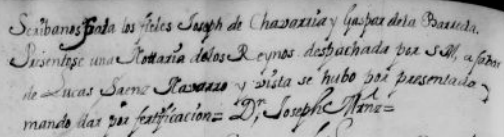 Scribanos para los fieles Joseph de Chavarria y Gaspar de la Barreda.
Presentose una Nottaria delos Reynos despachada por S M, a fabor
de Lucas Saenz Navarro y vista se hubo por presentado y
mando dar por fertificacion = Dn Joseph Mrnz =